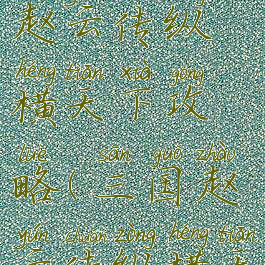 赵云传纵
héng tiān xià gōng
横天下攻
lüè sān guó zhào
略(三国赵
yún chuán zòng héng tiān
云传纵横天